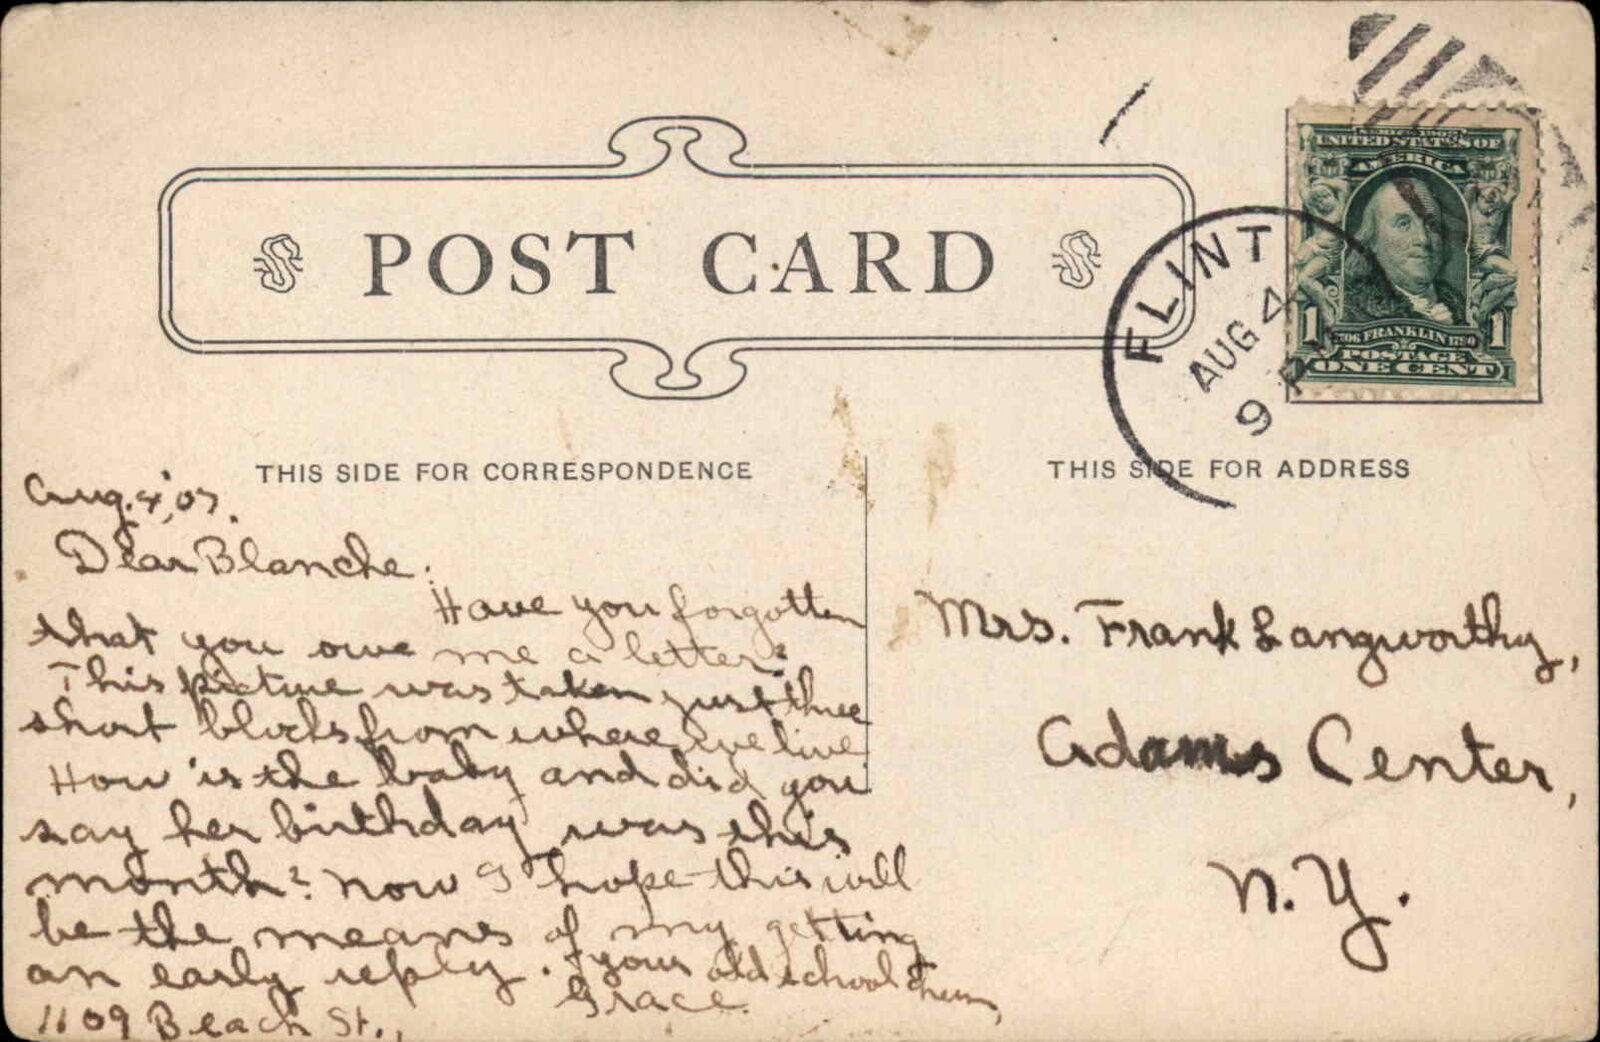 POST CARD
THIS SIDE FOR CORRESPONDENCE
THIS SIDE FOR ADDRESS
FLINT
AUG 4
9 P
SERIES 1902
UNITED STATES OF
AMERICA
1 1706 FRANKLIN 1790 1
POSTAGE
ONE CENT
Aug. 4, '07.
Dear Blanche:
Have you forgotten
that you owe me a letter?
This picture was taken just three
short blocks from where we live
How is the baby and did you
say her birthday was this
month? Now I hope this will
be the means of my getting
an early reply. Your old school chum,
Grace.
1109 Beach St.,
Mrs. Frank Langworthy,
Adams Center,
N. Y.